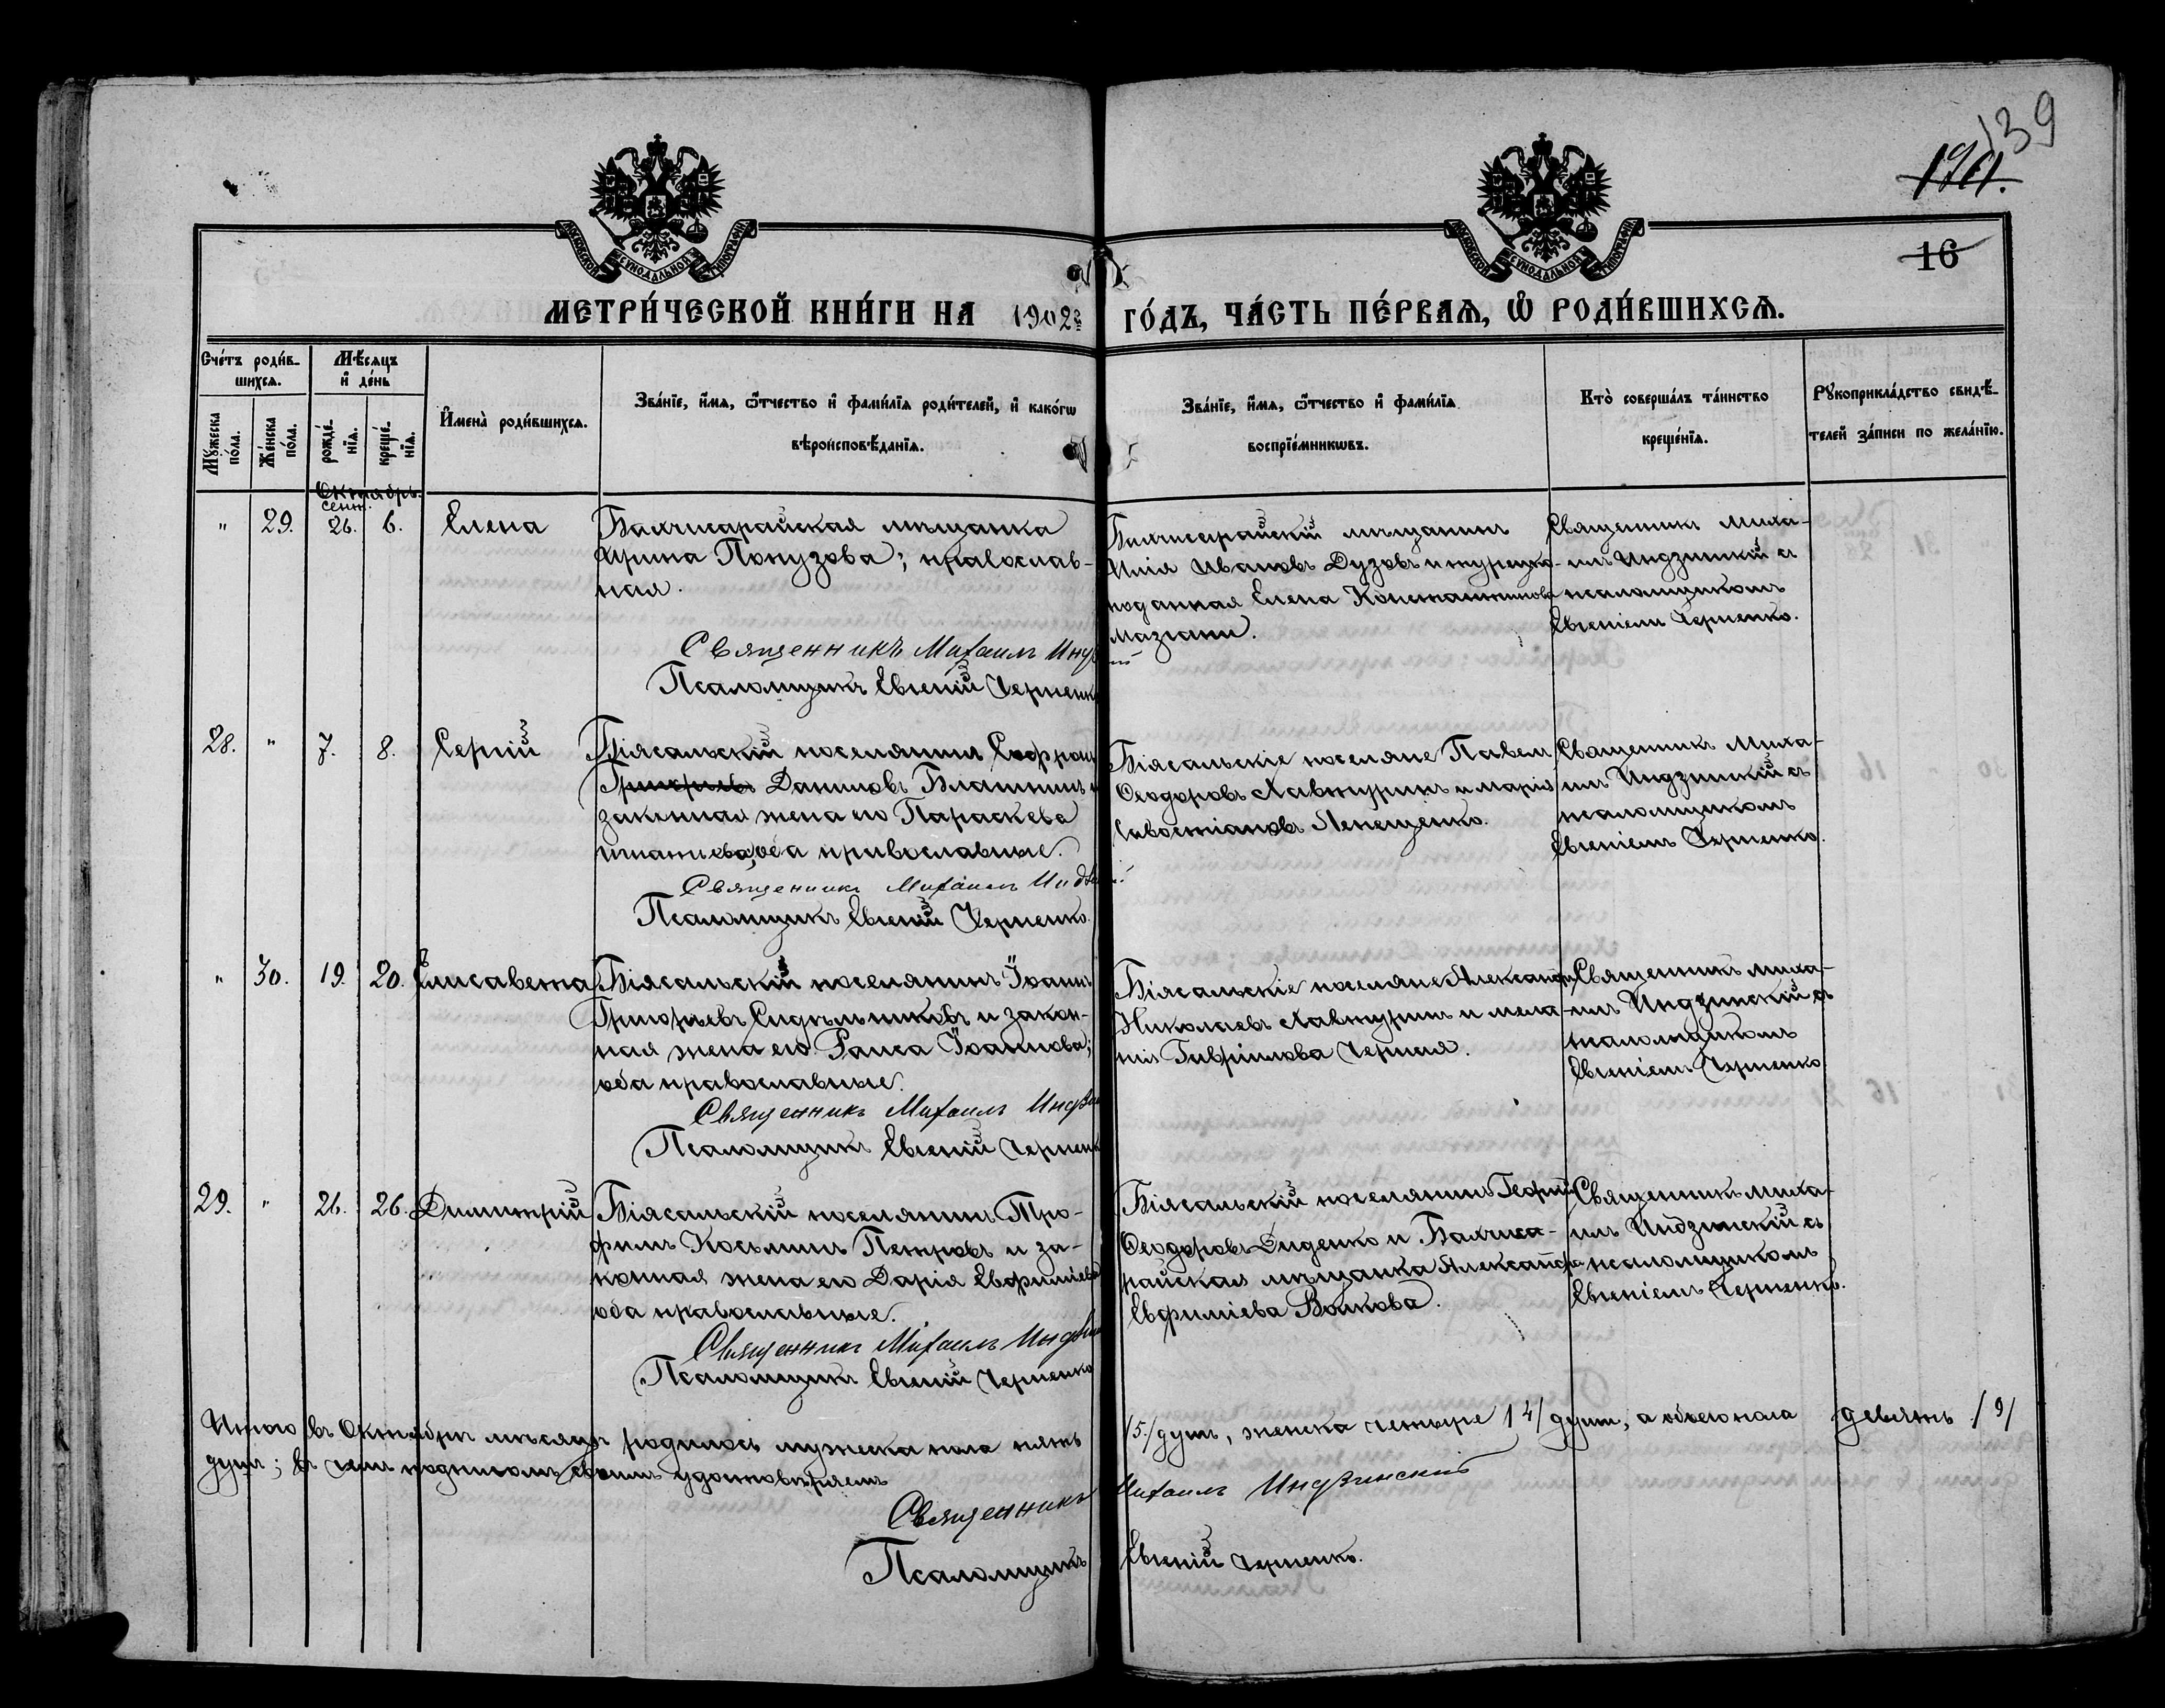 139
191.
16
МОСКОВСКОЙ СУНОДАЛЬНОЙ ТИПОГРАФІИ
МОСКОВСКОЙ СУНОДАЛЬНОЙ ТИПОГРАФІИ
МЕТРИ́ЧЕСКОЙ КНИ́ГИ НА 1902й ГО́ДЪ, ЧА́СТЬ ПЕ́РВАѦ, Ѽ РОДИ́ВШИХСѦ.
Сче́тъ роди́в-
шихсѧ.
Мѣ́сяцъ
и҆ де́нь
Мꙋ́жеска
по́ла.
Же́нска
по́ла.
рожде́-
нїѧ.
креще́-
нїѧ.
И҆мена̀ роди́вшихсѧ.
Зва́нїе, и҆́мѧ, ѻ҆́тчество и҆ фами́лїѧ роди́телей, и҆ како́гѡ
вѣроисповѣ́данїѧ.
Зва́нїе, и҆́мѧ, ѻ҆́тчество и҆ фами́лїѧ
воспрїе́мникѡвъ.
Кто̀ соверша́лъ та́инство
креще́нїѧ.
Рꙋкоприкла́дство свидѣ́-
телей за́писи по жела́нїю.
Октябрь.
сент.
" 29. 26. 6. Елена
Бахчисарайская мѣщанка
Ирина Понузова; православ-
ная.
Священникъ Михаилъ
Псаломщикъ Евгеній Черненко
Бахчисарайскій мѣщанинъ
Илія Ивановъ Дузовъ и турецко-
поданная Елена Константинова
Мазгани.
Священникъ Миха-
илъ Индзинскій съ
псаломщикомъ
Евгеніемъ Черненко.
28. " 7. 8. Сергій
Біясальскій поселянинъ Софрон
Григорьевъ Даниловъ Влашкинъ и
законная жена его Параскева
Игнатиева, оба православные.
Священникъ Михаилъ
Псаломщикъ Евгеній Черненко.
Біясальскіе поселяне Павелъ
Ѳеодоровъ Лавшуринъ и Марія
Савостіанова Лепещенко.
Священникъ Миха-
илъ Индзинскій съ
псаломщикомъ
Евгеніемъ Черненко.
" 30. 19. 20. Елисавета
Біясальскій поселянинъ Іоаннъ
Григорьевъ Сидѣльниковъ и закон-
ная жена его Раиса Іоаннова;
оба православные.
Священникъ Михаилъ
Псаломщикъ Евгеній Черненк
Біясальскіе поселяне Александръ
Николаевъ Лавшуринъ и Мела-
нія Гавріилова Черная.
Священникъ Миха-
илъ Индзинскій съ
псаломщикомъ
Евгеніемъ Черненко
29. " 26. 26. Димитрій
Біясальскій поселянинъ Тро-
фимъ Косьминъ Петровъ и за-
конная жена его Дарія Евфиміева
оба православные.
Священникъ Михаилъ
Псаломщикъ Евгеній Черненко
Біясальскій поселянинъ Георгій
Ѳеодоровъ Диденко и Бахчиса-
райская мѣщанка Александра
Евфиміева Волкова.
Священникъ Миха-
илъ Индзинскій съ
псаломщикомъ
Евгеніемъ Черненко.
Итого въ Октябрѣ мѣсяцѣ родилось мужеска пола пять /5./ душъ, женска четыре /4/ душъ, а обоего пола девять /9/
душъ; въ чемъ подписомъ своимъ удостовѣряемъ
Священникъ Михаилъ Индзинскій
Псаломщикъ Евгеній Черненко.